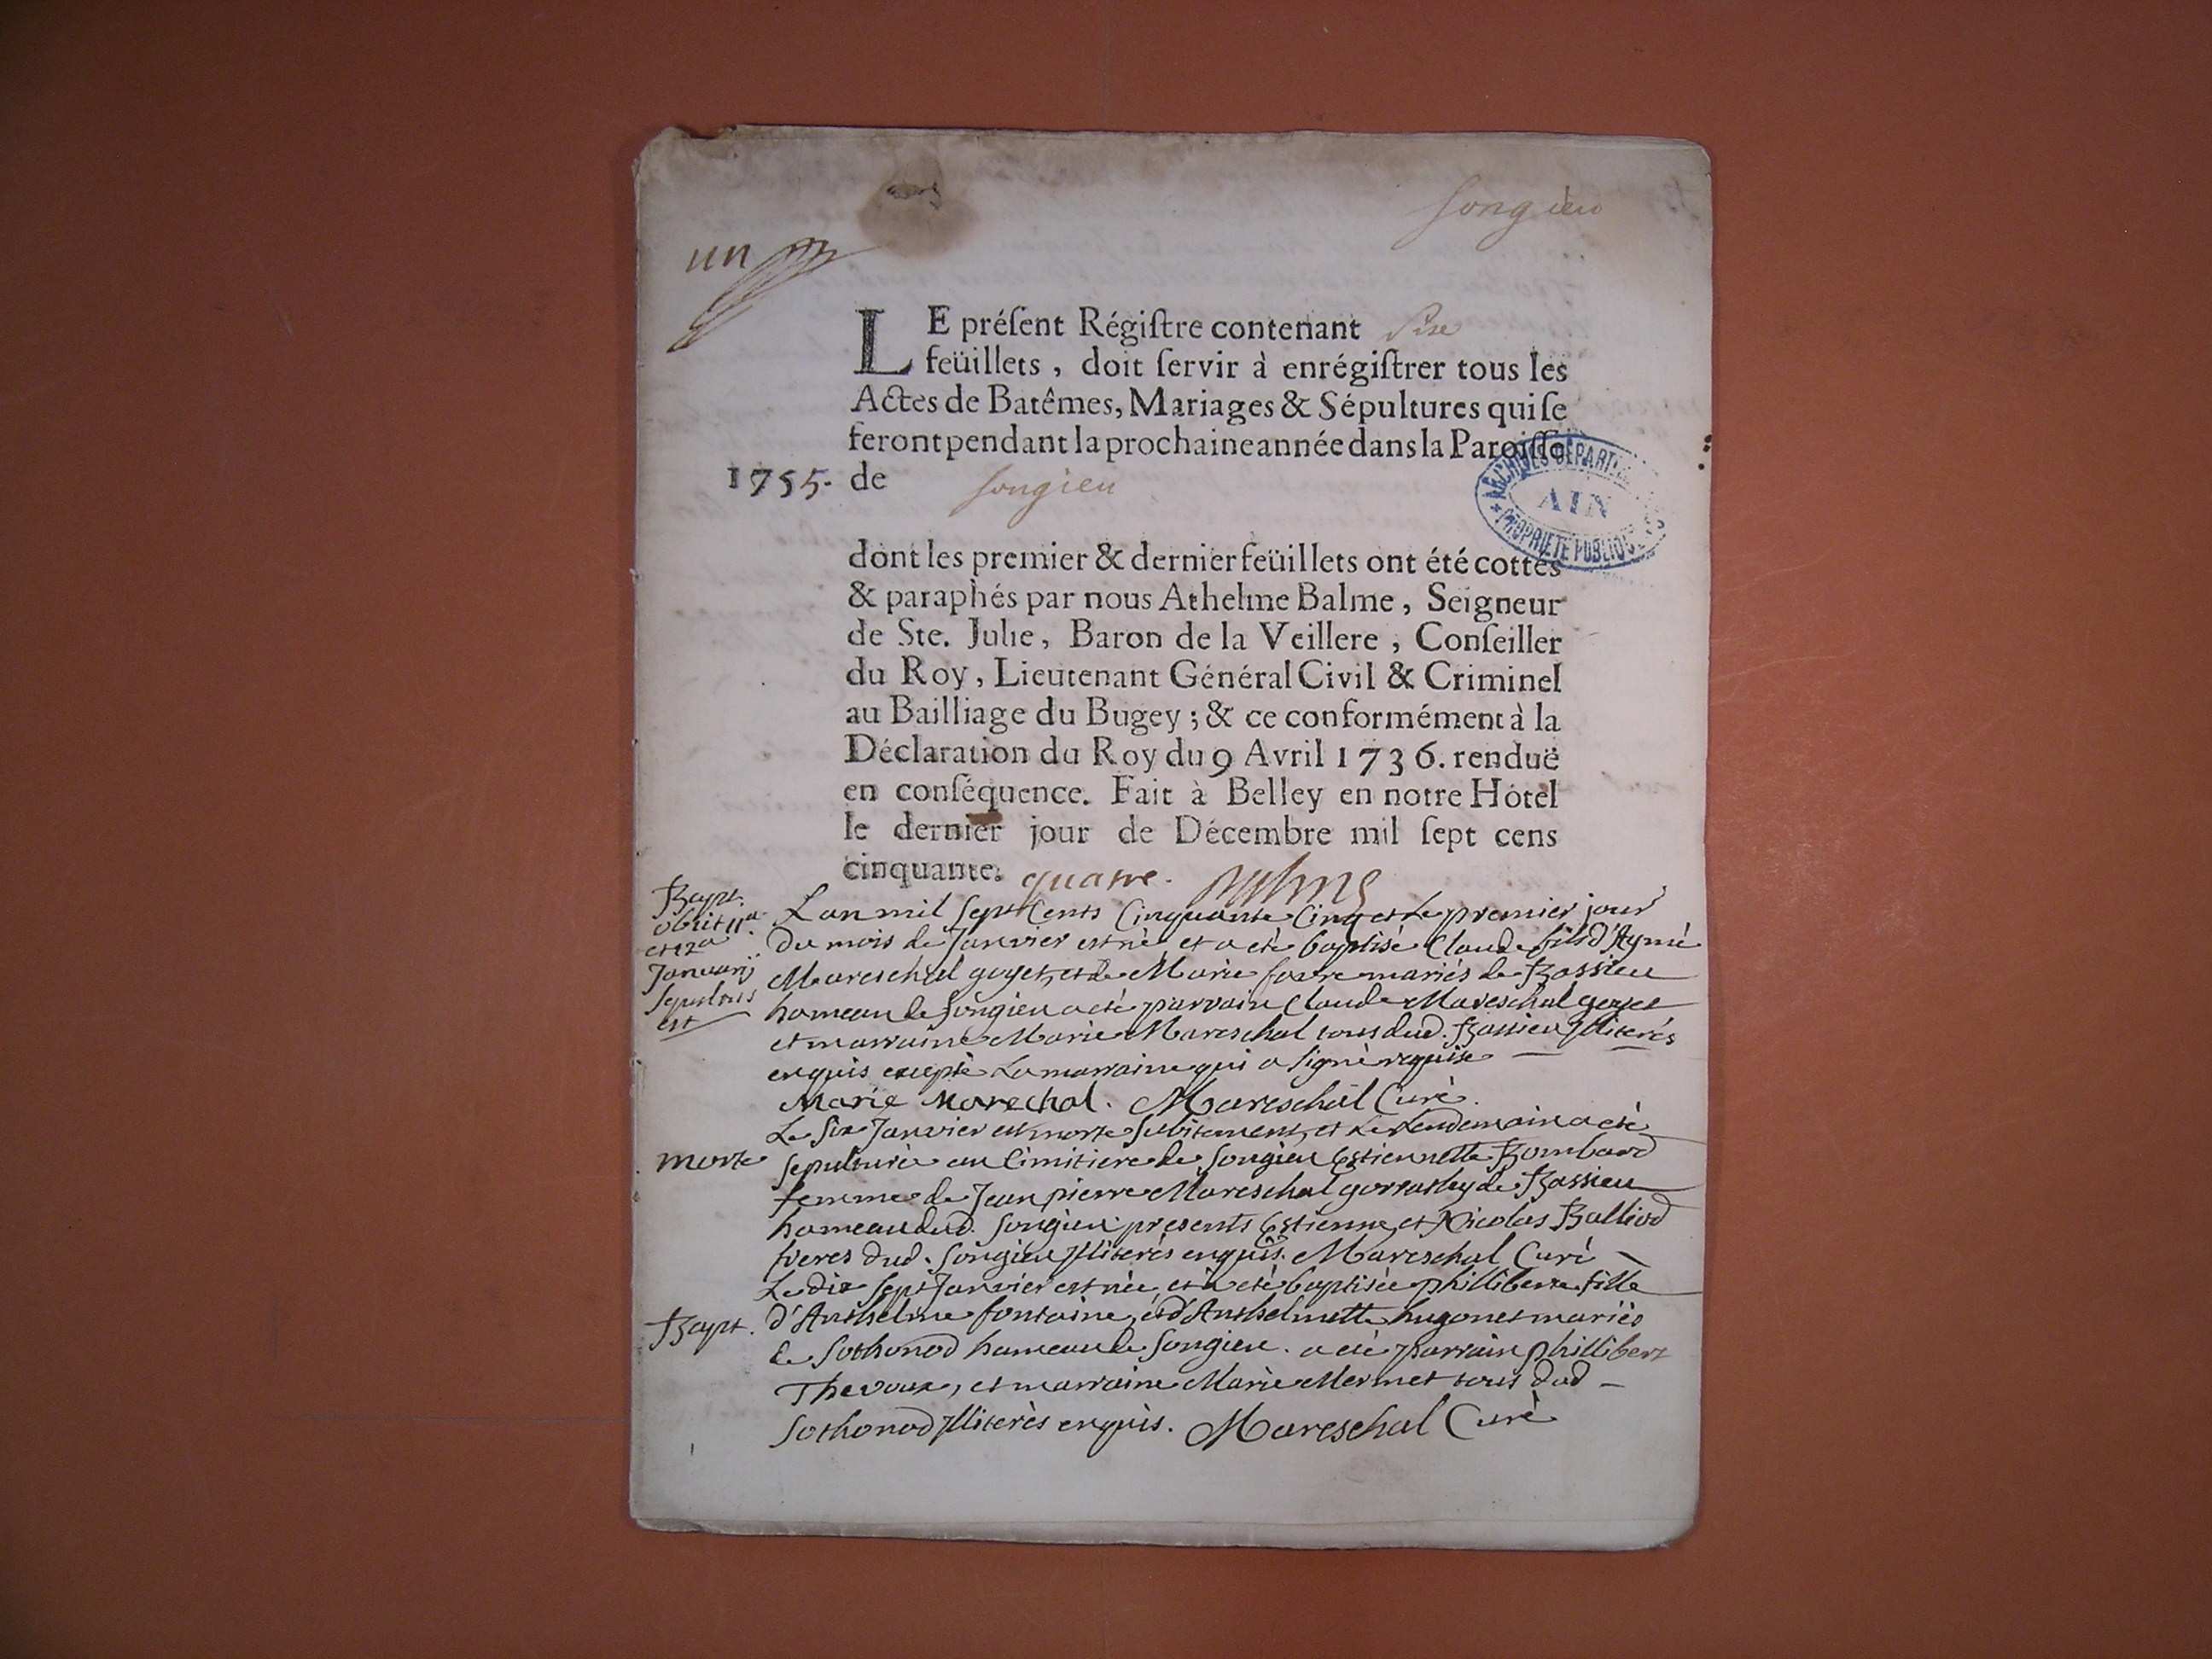 songieu
un
LE préſent Régiſtre contenant six
feüillets, doit ſervir à enrégiſtrer tous les
Actes de Batêmes, Mariages & Sépultures qui ſe
feront pendant la prochaine année dans la Paroiſſe
1755. de songieu
ARCHIVES DÉPART
AIN
PROPRIÉTÉ PUBLIQUE
dont les premier & dernier feüillets ont été cottés
& paraphés par nous Athelme Balme, Seigneur
de Ste. Julie, Baron de la Veillere, Conſeiller
du Roy, Lieutenant Général Civil & Criminel
au Bailliage du Bugey; & ce conformément à la
Déclaration du Roy du 9 Avril 1736. renduë
en conſéquence. Fait à Belley en notre Hôtel
le dernier jour de Décembre mil ſept cens
cinquante. quatre. Balme
Bapt.
obiit 11a
et 12a
Januarij
sepultus
est
L'an mil sept Cents Cinquante Cinq et Le premier jour
du mois de Janvier est né et a eté baptisé Claude fils d'Aymé
Mareschal goyet, et de Marie favre mariés de Bassieu
hameau de songieu a eté parrain Claude Mareschal goyet
et marraine Marie Mareschal tous dud. Bassieu Jlliterés
enquis excepté La marraine qui a signé requise
Marie Marechal. Mareschal Curé.
morte
Le six Janvier est morte subitement, et Le Lendemain a eté
sepulturée au Cimitiere de songieu Estiennette Bombard
femme de Jean pierre Mareschal de Bassieu
hameau dud. songieu presents Estienne et Nicolas Balliod
freres dud. songieu Jlliterés enquis. Mareschal Curé
Bapt.
Le dix sept Janvier est née, et a eté baptisée phillibere fille
d'Anthelme fontaine, et d'Anthelmette hugonet mariés
de sothonod hameau de songieu. a eté parrain phillibert
Thevoux, et marraine Marie Mermet tous dud
sothonod Jlliterés enquis. Mareschal Curé